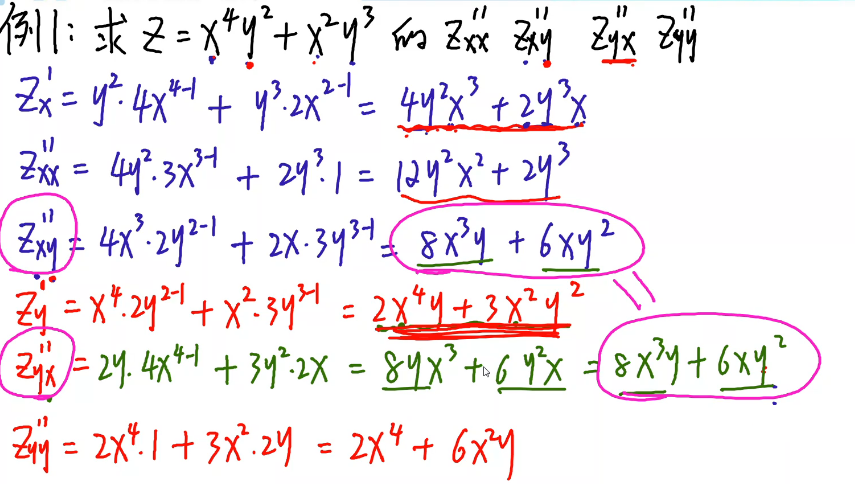 例11: 求 Z = x⁴y² + x²y³ 的 Z''xx Z''xy Z''yx Z''yy
Z'x = y²·4x⁴⁻¹ + y³·2x²⁻¹ = 4y²x³ + 2y³x
Z''xx = 4y²·3x³⁻¹ + 2y³·1 = 12y²x² + 2y³
Z''xy = 4x³·2y²⁻¹ + 2x·3y³⁻¹ = 8x³y + 6xy²
Z'y = x⁴·2y²⁻¹ + x²·3y³⁻¹ = 2x⁴y + 3x²y²
Z''yx = 2y·4x⁴⁻¹ + 3y²·2x = 8yx³ + 6y²x = 8x³y + 6xy²
Z''yy = 2x⁴·1 + 3x²·2y = 2x⁴ + 6x²y